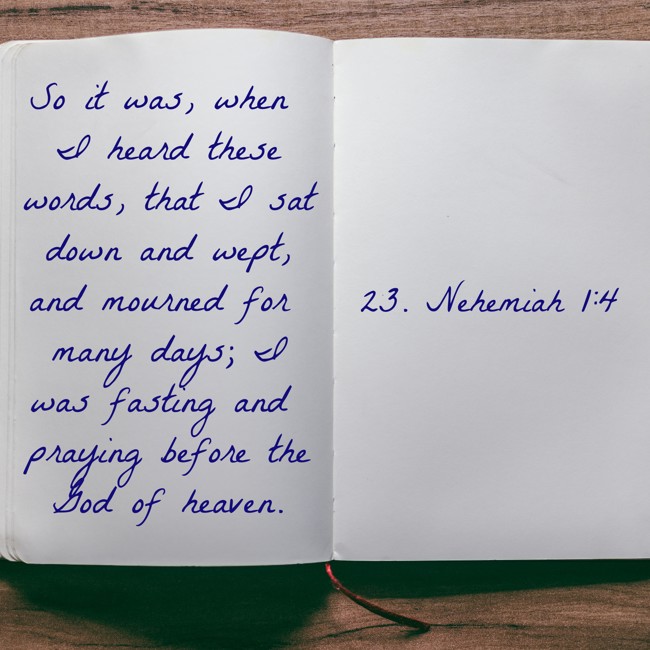 So it was, when
I heard these
words, that I sat
down and wept,
and mourned for
many days; I
was fasting and
praying before the
God of heaven.
23. Nehemiah 1:4